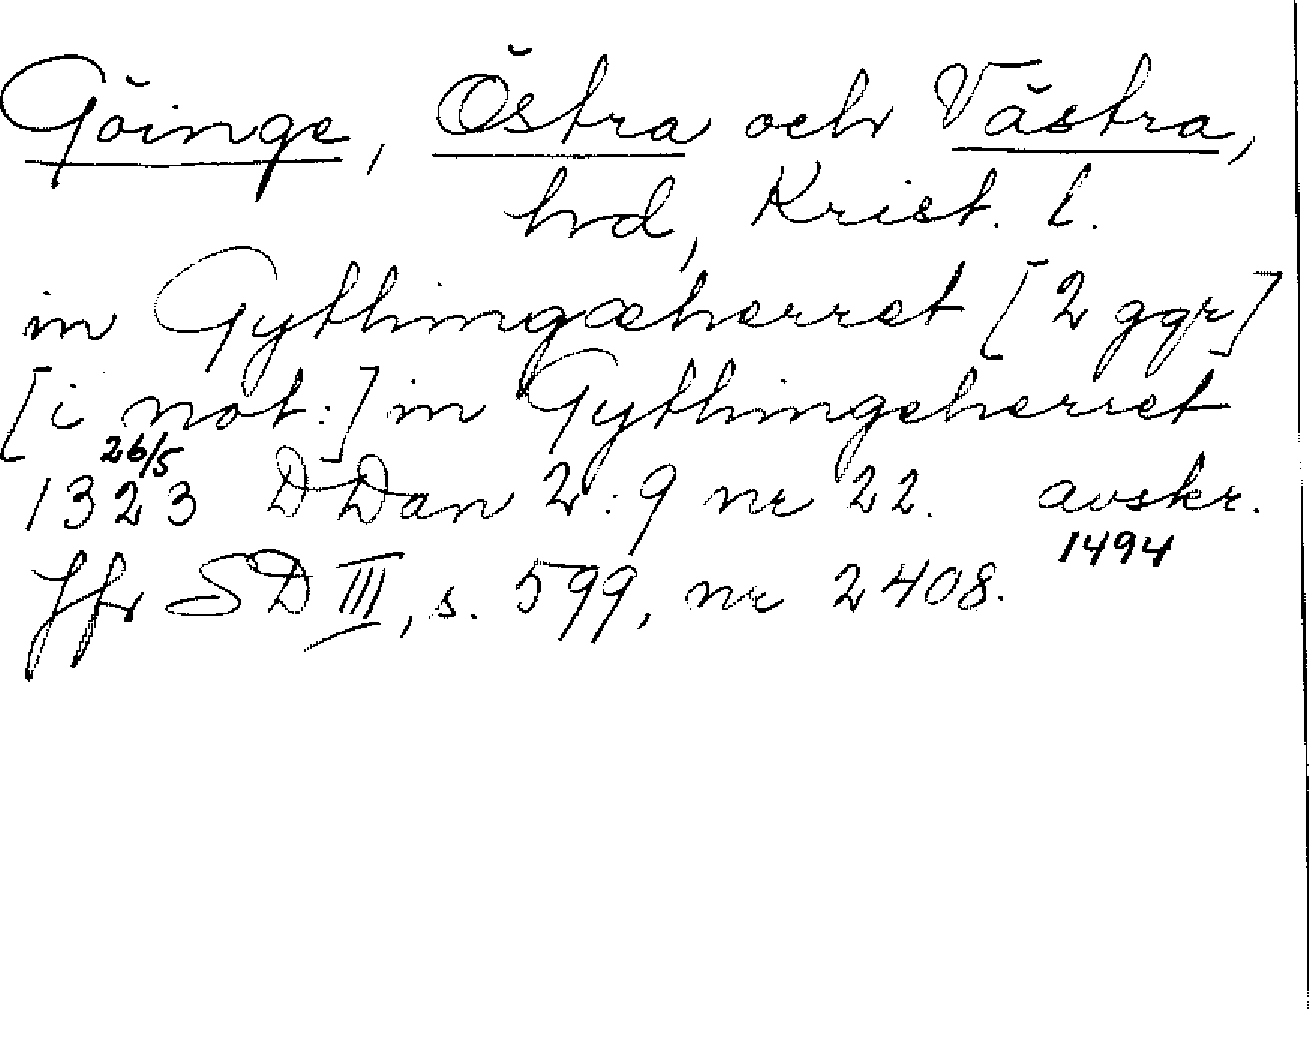 Göinge, Östra och Västra,
hd, Krist. l.
in Gythingæherret [2 ggr]
[i not:] in Gythingeherret
26/5
1323 DDan 2:9 nr 22. avskr.
1494
Jfr SD III, s. 599, nr 2408.